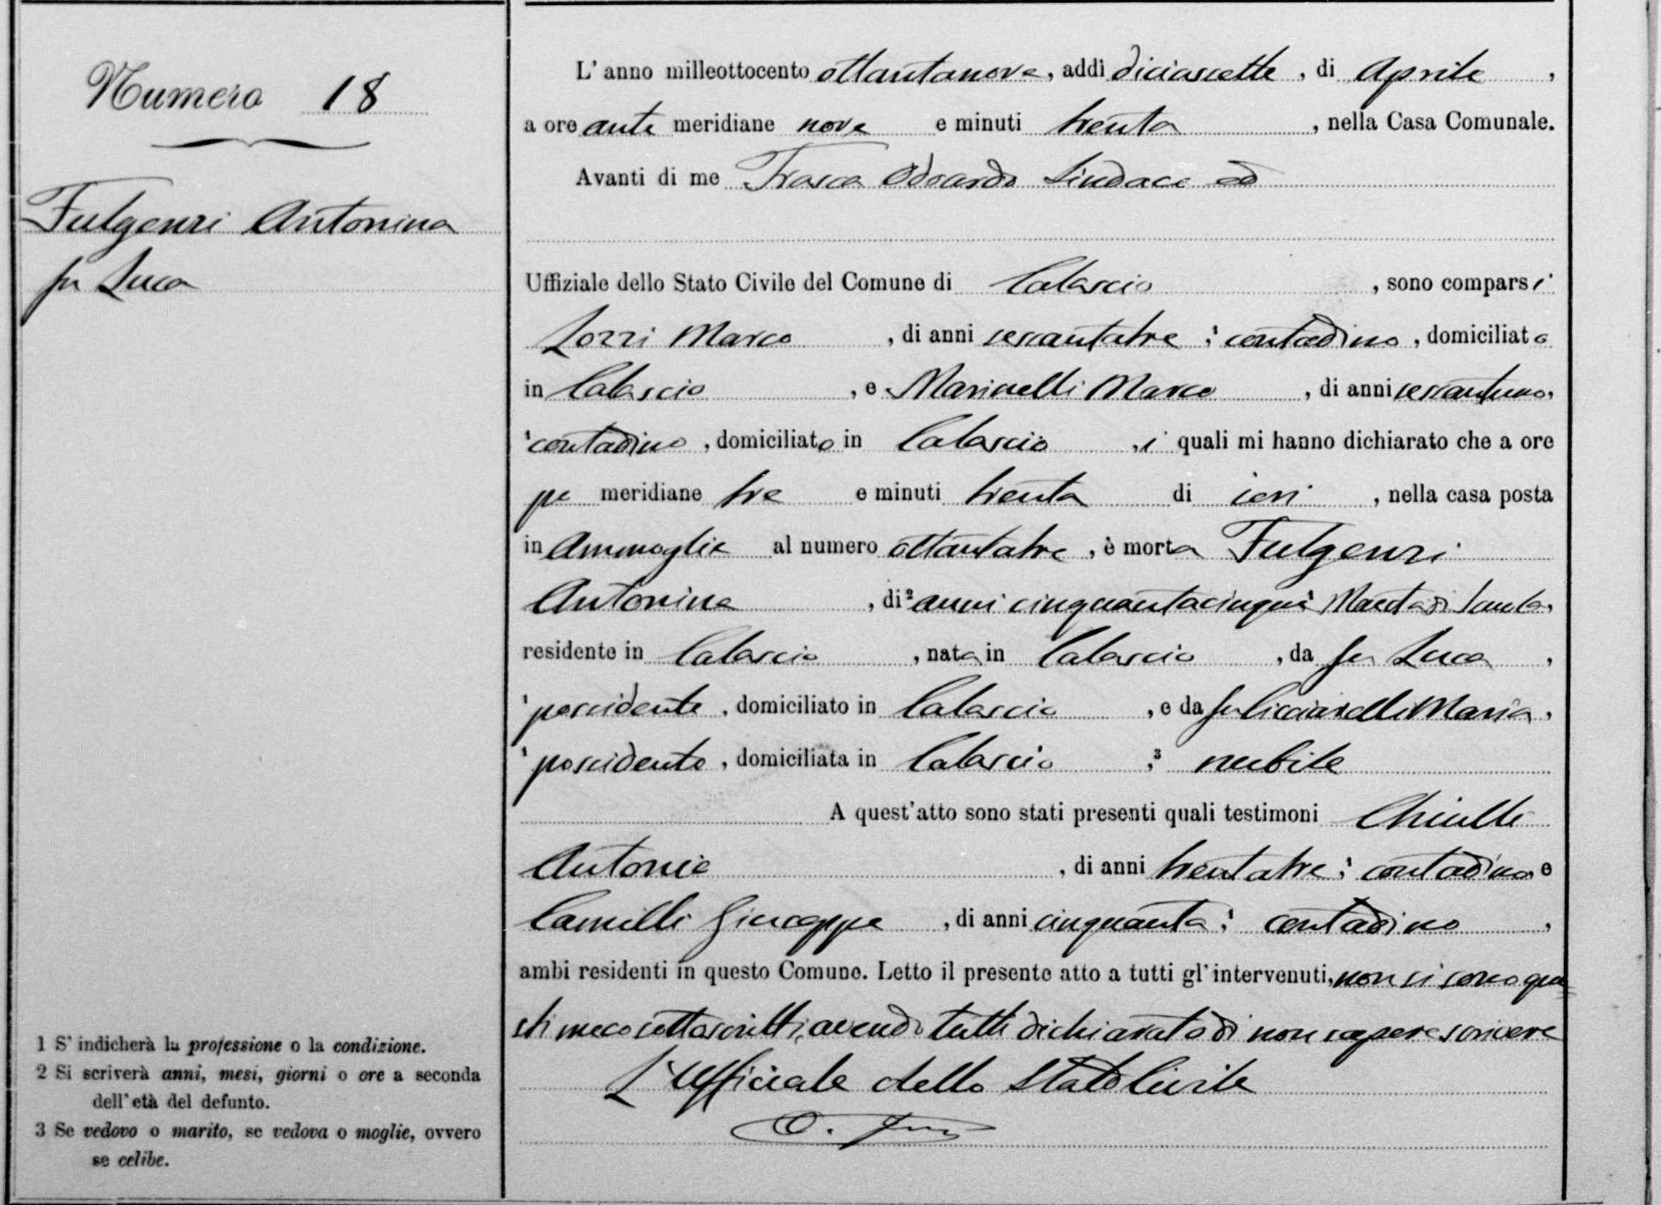 Numero 18
Fulgenzi Antonina
fu Luca
L'anno milleottocento ottantanove, addì diciascette, di Aprile,
a ore ante meridiane nove e minuti trenta, nella Casa Comunale.
Avanti di me Frasca Odoardo Sindaco ed
Uffiziale dello Stato Civile del Comune di Calascio, sono comparsi
Lozzi Marco, di anni sessantatre; ¹ contadino, domiciliato
in Calascio, e Marinelli Marco, di anni sessantuno,
¹ contadino, domiciliato in Calascio, i quali mi hanno dichiarato che a ore
po meridiane tre e minuti trenta di ieri, nella casa posta
in Ammoglie al numero ottantatre, è morta Fulgenzi
Antonina, di ² anni cinquantacinque,
residente in Calascio, nata in Calascio, da fu Luca,
¹ possidente, domiciliato in Calascio, e da fu Licciardelli Maria,
¹ possidente, domiciliata in Calascio, ³ nubile
A quest'atto sono stati presenti quali testimoni
Antonio, di anni trentatre; ¹ contadino e
Camilli Giuseppe, di anni cinquanta; ¹ contadino,
ambi residenti in questo Comune. Letto il presente atto a tutti gl'intervenuti, non si sono que
sti meco sottoscritti, avendo tutti dichiarato di non sapere scrivere
L'Ufficiale dello Stato Civile
1 S' indicherà la professione o la condizione.
2 Si scriverà anni, mesi, giorni o ore a seconda
dell'età del defunto.
3 Se vedovo o marito, se vedova o moglie, ovvero
se celibe.